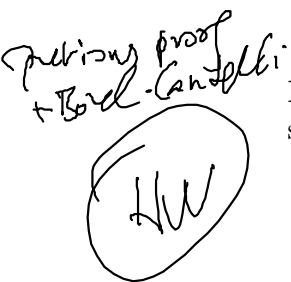 previous proof
+ Borel-Cantelli
HW